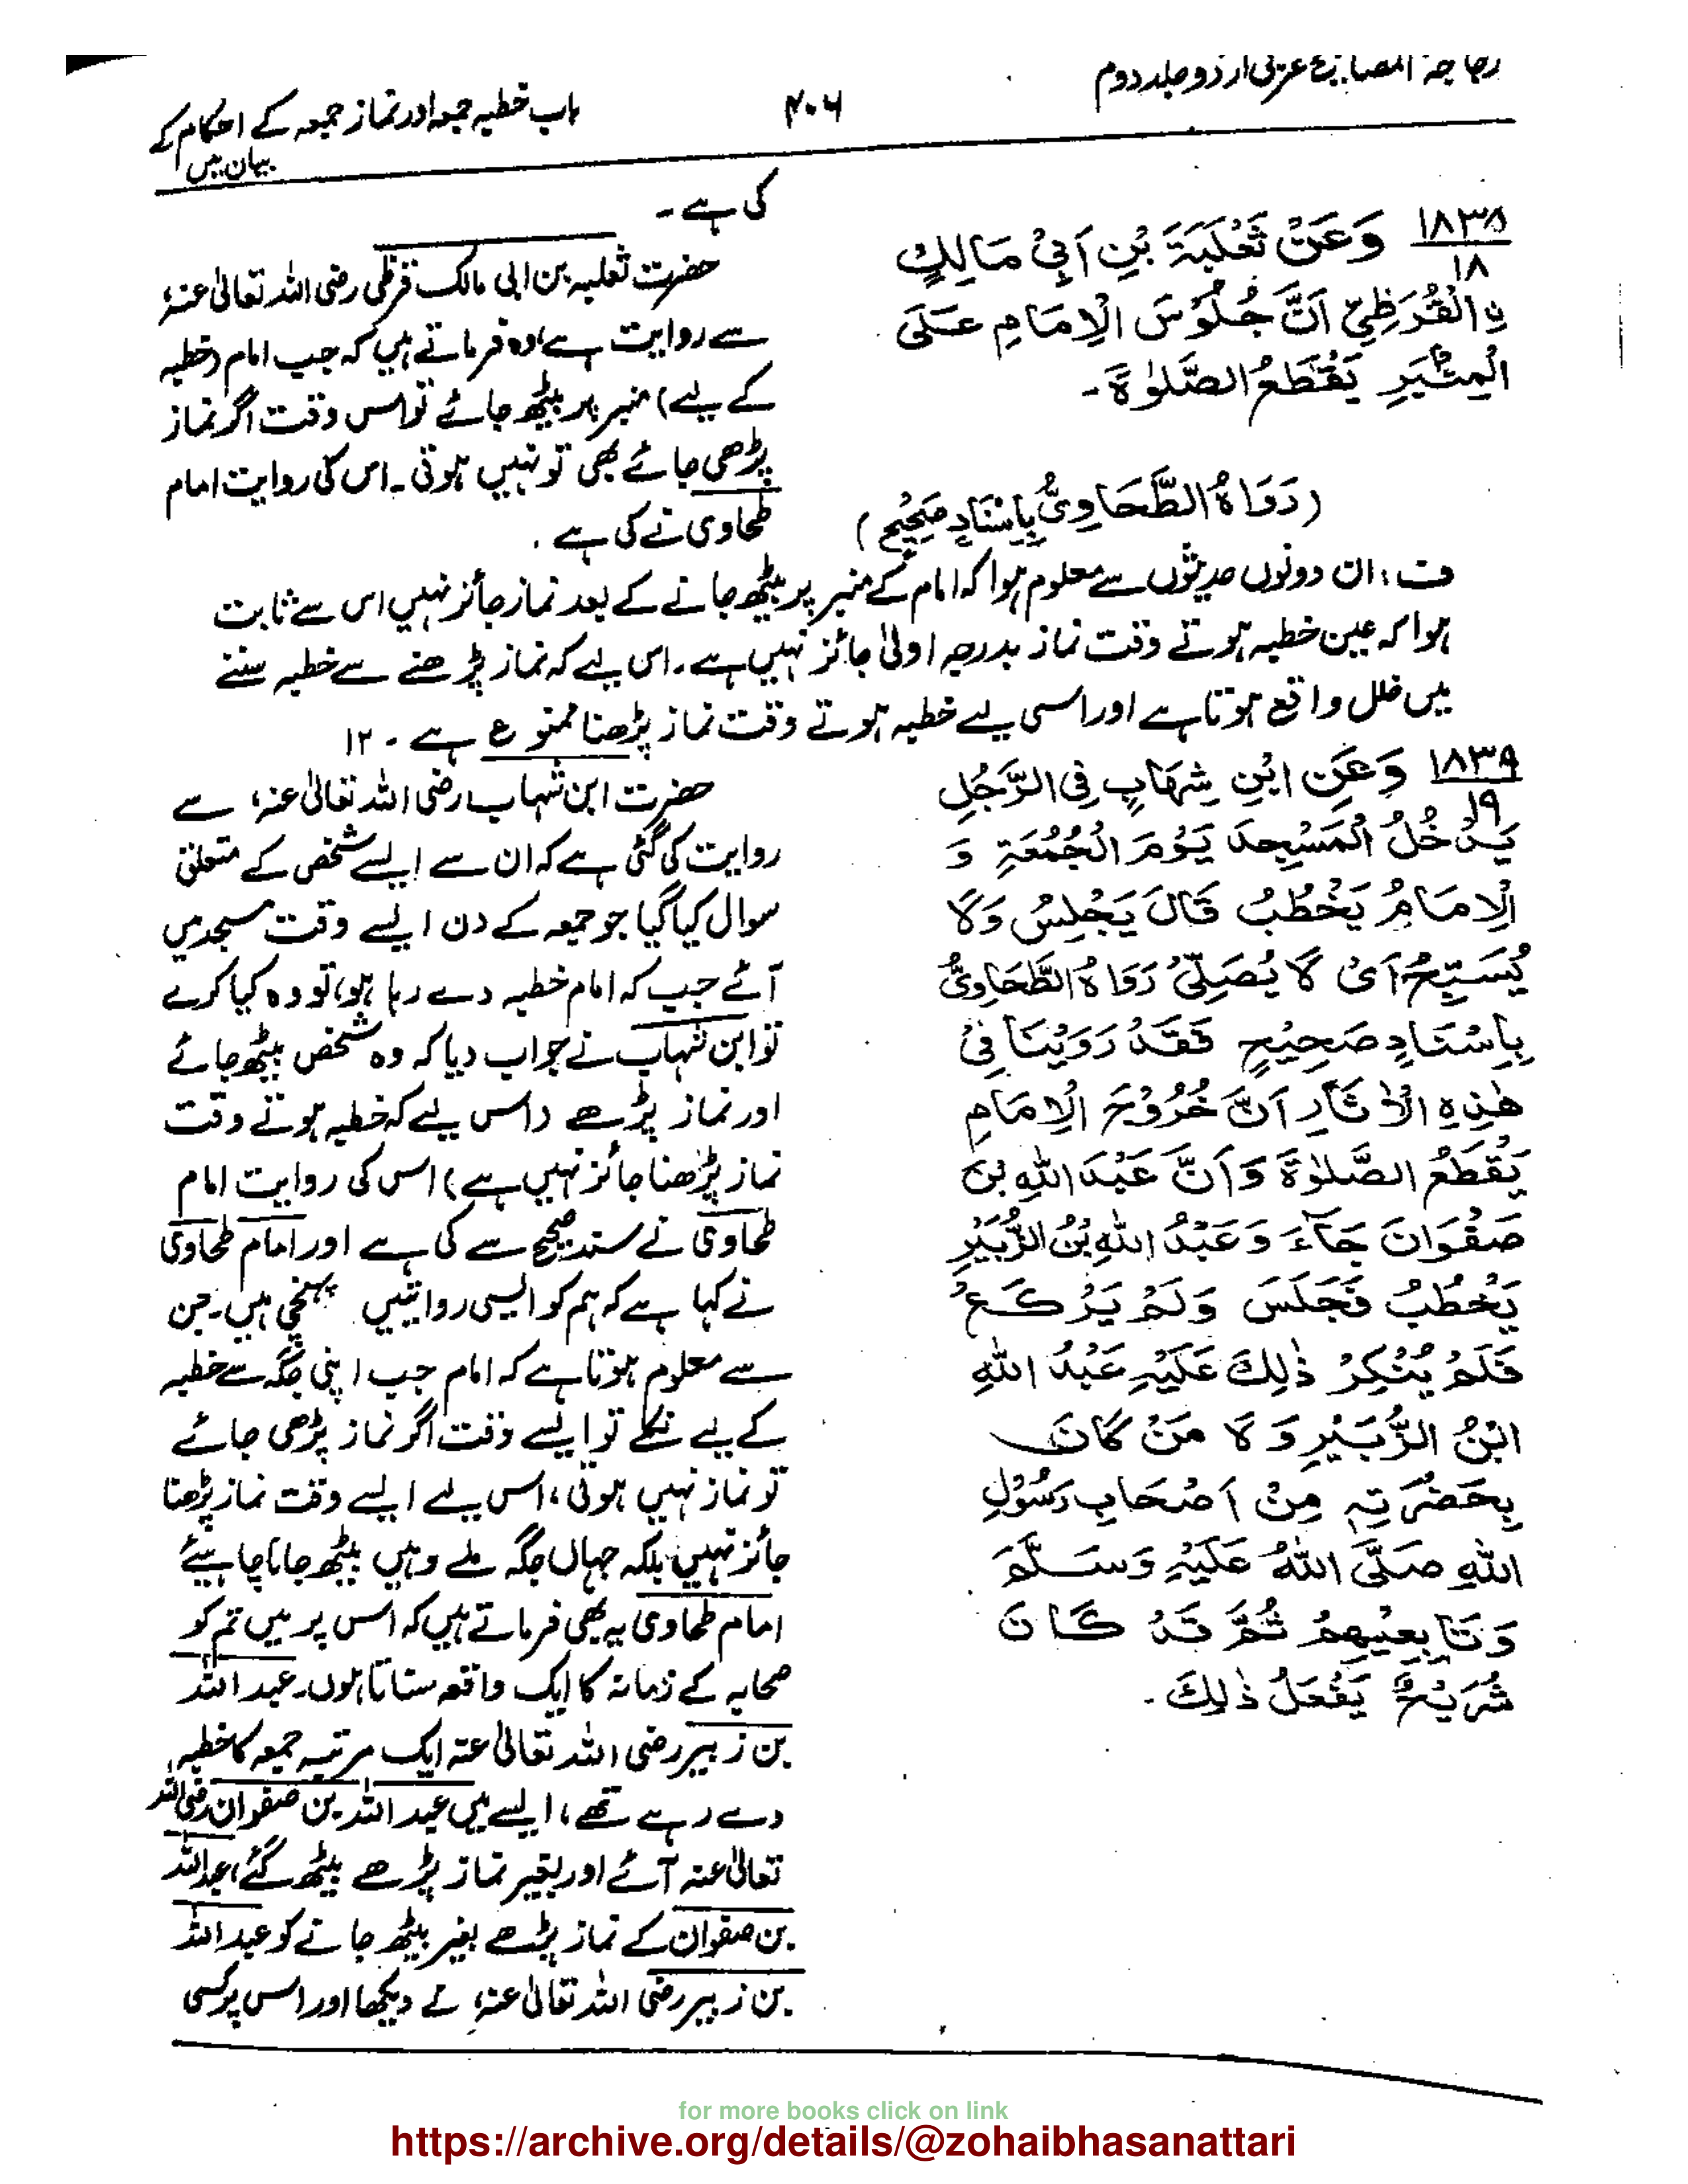 زجاجۃ المصابیح عربی اردو جلد دوم
۴۰۶
باب خطبہ جمعہ اور نماز جمعہ کے احکام کے
بیان میں
۱۸۳۸
۱۸
وَعَنْ ثَعْلَبَةَ بْنِ اَبِيْ مَالِكٍ
نِ الْقُرَظِيِّ اَنَّ جُلُوْسَ الْاِمَامِ عَلَى
الْمِنْبَرِ يَقْطَعُ الصَّلٰوةَ۔
(رَوَاهُ الطَّحَاوِيُّ بِاِسْنَادٍ صَحِيْحٍ)
کی ہے۔
حضرت ثعلبہ بن ابی مالک قرظی رضی اللہ تعالیٰ عنہ،
سے روایت ہے، وہ فرماتے ہیں کہ جب امام (خطبہ
کے لیے) منبر پر بیٹھ جائے تو اس وقت اگر نماز
پڑھی جائے بھی تو نہیں ہوتی۔ اس کی روایت امام
طحاوی نے کی ہے۔
ف: ان دونوں حدیثوں سے معلوم ہوا کہ امام کے منبر پر بیٹھ جانے کے بعد نماز جائز نہیں اس سے ثابت
ہوا کہ عین خطبہ ہوتے وقت نماز بدرجہ اولیٰ جائز نہیں ہے۔ اس لیے کہ نماز پڑھنے سے خطبہ سننے
میں خلل واقع ہوتا ہے اور اسی لیے خطبہ ہوتے وقت نماز پڑھنا ممنوع ہے۔ ۱۲
۱۸۳۹
۱۹
وَعَنِ ابْنِ شِهَابٍ فِي الرَّجُلِ
يَدْخُلُ الْمَسْجِدَ يَوْمَ الْجُمُعَةِ وَ
الْاِمَامُ يَخْطُبُ قَالَ يَجْلِسُ وَلَا
يُسَبِّحُ اَىْ لَا يُصَلِّيْ رَوَاهُ الطَّحَاوِيُّ
بِاِسْنَادٍ صَحِيْحٍ فَقَدْ رَوَيْنَا فِيْ
هٰذِهِ الْاٰثَارِ اَنَّ خُرُوْجَ الْاِمَامِ
يَقْطَعُ الصَّلٰوةَ وَاَنَّ عَبْدَ اللهِ بْنَ
صَفْوَانَ جَآءَ وَعَبْدُ اللهِ بْنُ الزُّبَيْرِ
يَخْطُبُ فَجَلَسَ وَلَمْ يَرْكَعْ
فَلَمْ يُنْكِرْ ذٰلِكَ عَلَيْهِ عَبْدُ اللهِ
ابْنُ الزُّبَيْرِ وَلَا مَنْ كَانَ
بِحَضْرَتِهٖ مِنْ اَصْحَابِ رَسُوْلِ
اللهِ صَلَّى اللهُ عَلَيْهِ وَسَلَّمَ
وَتَابِعِيْهِمْ ثُمَّ قَدْ كَانَ
شُرَيْحٌ يَفْعَلُ ذٰلِكَ۔
حضرت ابن شہاب رضی اللہ تعالیٰ عنہ، سے
روایت کی گئی ہے کہ ان سے ایسے شخص کے متعلق
سوال کیا گیا جو جمعہ کے دن ایسے وقت مسجد میں
آئے جب کہ امام خطبہ دے رہا ہو، تو وہ کیا کرے
تو ابن شہاب نے جواب دیا کہ وہ شخص بیٹھ جائے
اور نماز پڑھے (اس لیے کہ خطبہ ہوتے وقت
نماز پڑھنا جائز نہیں ہے) اس کی روایت امام
طحاوی نے سند صحیح سے کی ہے اور امام طحاوی
نے کہا ہے کہ ہم کو ایسی روایتیں پہنچی ہیں۔ جن
سے معلوم ہوتا ہے کہ امام جب اپنی جگہ سے خطبہ
کے لیے نکلے تو ایسے وقت اگر نماز پڑھی جائے
تو نماز نہیں ہوتی، اس لیے ایسے وقت نماز پڑھنا
جائز نہیں بلکہ جہاں جگہ ملے وہیں بیٹھ جانا چاہیئے
امام طحاوی یہ بھی فرماتے ہیں کہ اس پر میں تم کو
صحابہ کے زمانہ کا ایک واقعہ سناتا ہوں۔ عبد اللہ
بن زبیر رضی اللہ تعالیٰ عنہ ایک مرتبہ جمعہ کا خطبہ
دے رہے تھے، ایسے میں عبد اللہ بن صفوان رضی اللہ
تعالیٰ عنہ آئے اور بغیر نماز پڑھے بیٹھ گئے، عبداللہ
بن صفوان کے نماز پڑھے بغیر بیٹھ جانے کو عبد اللہ
بن زبیر رضی اللہ تعالیٰ عنہ، نے دیکھا اور اس پر کسی
for more books click on link
https://archive.org/details/@zohaibhasanattari